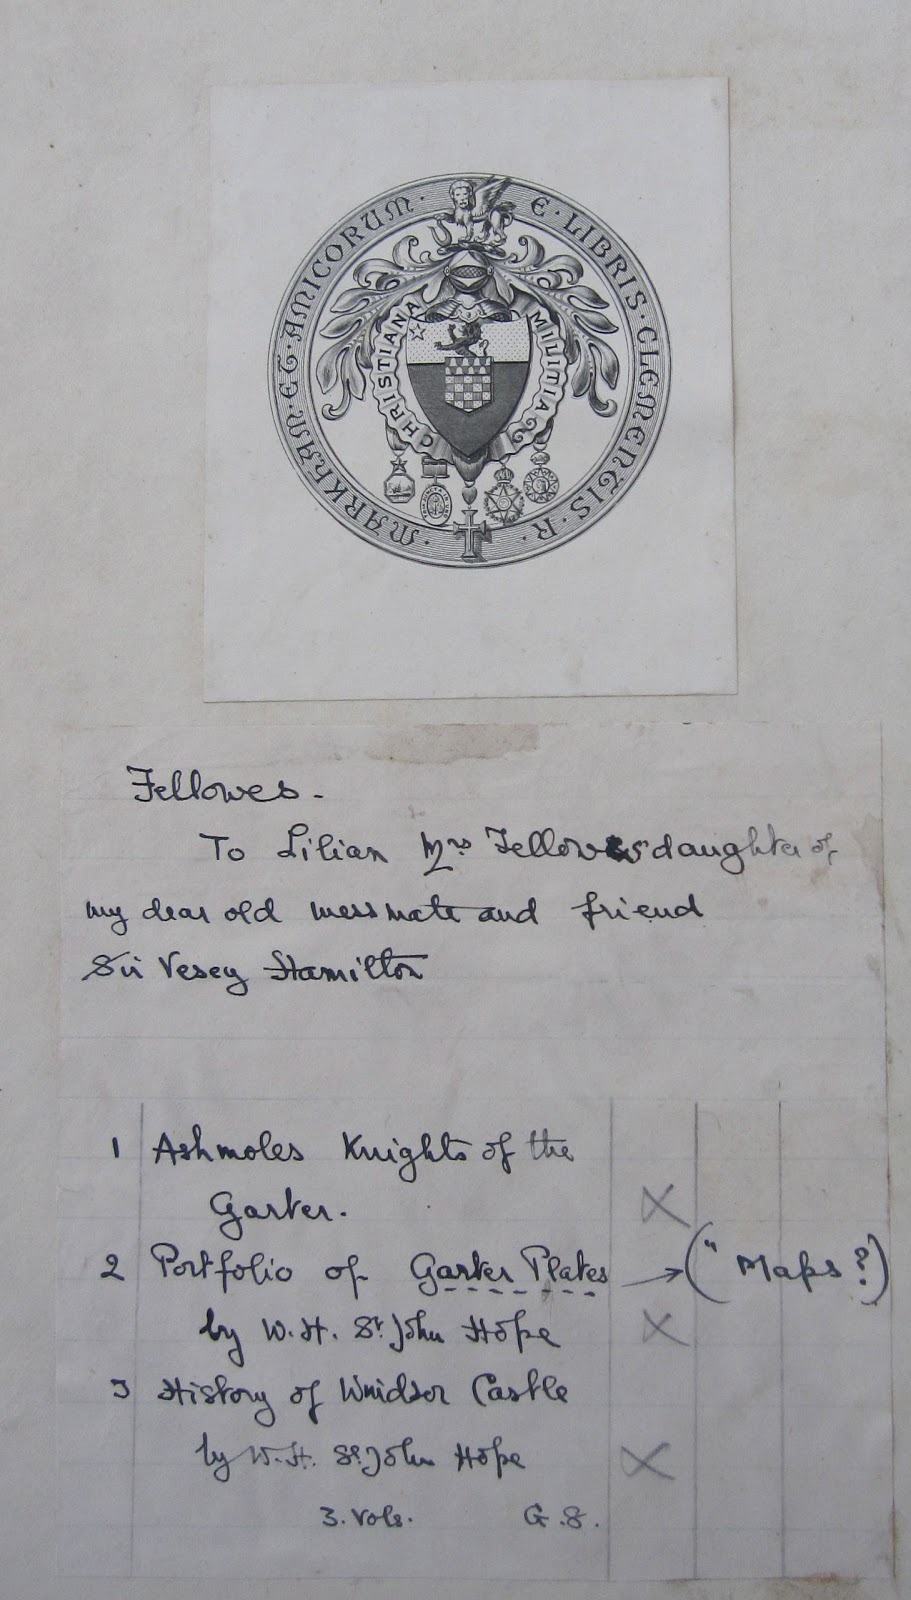 E · LIBRIS · CLEMENTIS · R · MARKHAM · ET · AMICORUM ·
CHRISTIANA MILITIA
Fellowes -
To Lilian Mrs Fellowes daughter of
my dear old messmate and friend
Sir Vesey Hamilton
1 Ashmoles Knights of the
Garter.
2 Portfolio of Garter Plates → (" Maps?)
by W. H. St John Hope
3 History of Windsor Castle
by W. H. St. John Hope
3. Vols. G. S.